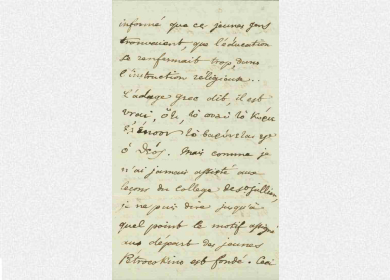 informé que ces jeunes gens
trouvaient, que l'éducation
se renfermait trop dans
l'instruction religieuse..
L'adage grec dit, il est
vrai, ὅτι, τὸ
ὁ Θεός. Mais comme je
n'ai jamais assisté aux
leçons du college
je ne puis dire jusqu'à
quel point le motif
aux départ des jeunes
Petrocokino est fondé. Ceci